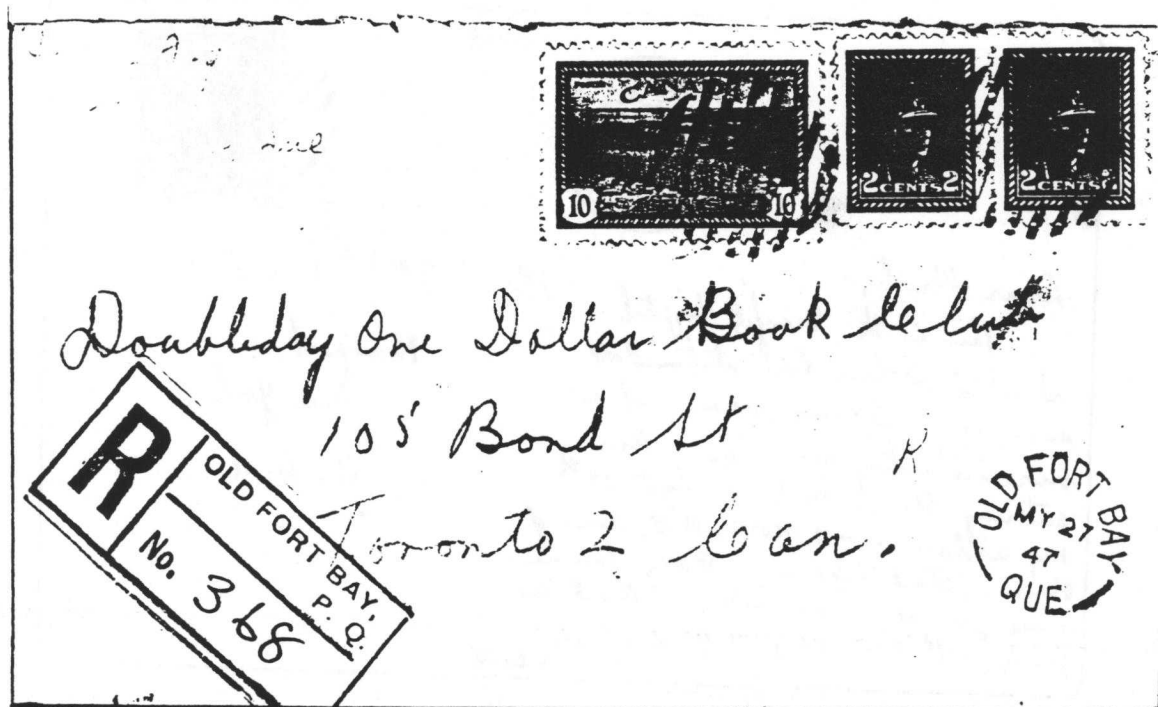 CANADA
10 10
2 CENTS 2
2 CENTS
Doubleday One Dollar Book Club
105 Bond St
Toronto 2 Can.
R
R
OLD FORT BAY,
P. Q.
No. 368
OLD FORT BAY
MY 27
47
QUE